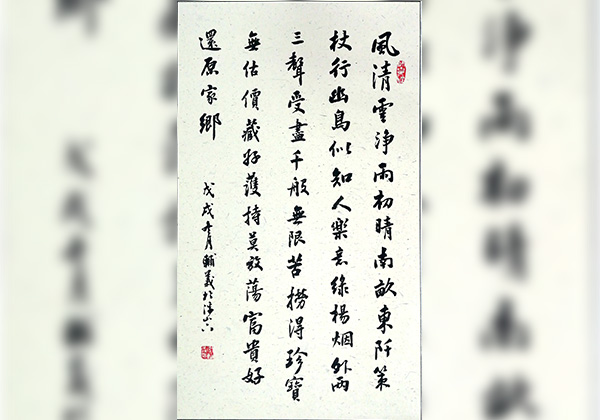 風清雲淨雨初晴南畝東阡策
杖行幽鳥似知人樂意綠楊烟外兩
三聲受盡千般無限苦撈得珍寶
無估價藏好護持莫放蕩富貴好
還原家鄉
戊戌年月輔義於津